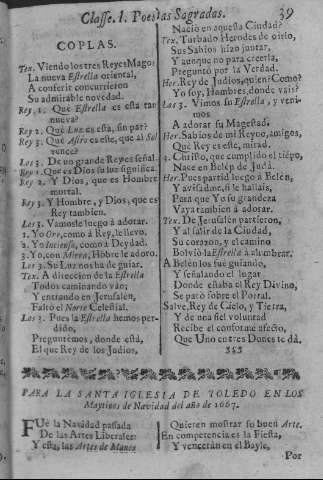 Classe. I. Poesias Sagradas. 39
COPLAS.
Tex. Viendo los tres Reyes Magos
La nueva Estrella oriental,
A conferir concurrieron
Su admirable novedad.
Rey. 1. Que Estrella es esta tan
nueva?
Rey 2. Què Luz es esta, sin par?
Rey 3. Què Astro es este, que al Sol
vence?
Los 3. De un grande Reyes señal.
Rey 1. Que es Dios su luz significa
Rey 2. Y Dios, que es Hombre
mortal.
Rey 3. Y Hombre, y Dios, que es
Rey tambien.
Los 3. Vamosle luego à adorar.
1. Yo Oro, como à Rey, le llevo.
2. Yo Incienso, como à Deydad.
3. Yo, con Mirra, Hõbre le adoro.
Los 3. Su Luz nos ha de guiar.
Tex. A direccion de la Estrella
Todos caminando vàn;
Y entrando en Jerusalèn,
Faltò el Norte Celestial.
Los 3. Pues la Estrella hemos per-
dido,
Preguntemos, donde està,
El que Rey de los Judios,
Naciò en aquesta Ciudad?
Tex. Turbado Herodes de oirlo,
Sus Sabios hizo juntar,
Y aunque no para creerla,
Preguntò por la Verdad.
Her. Rey de Judios, quien? Como?
Yo soy, Hombres, donde vais?
Los 3. Vimos su Estrella, y veni-
mos
A adorar su Magestad.
Her. Sabios de mi Reyno, amigos,
Què Rey es este, mirad.
3. Christo, que cumplido el tiẽpo,
Nace en Belèn de Judà.
Her. Pues partid luego à Belèn,
Y avisadme, si le hallais,
Para que Yo su grandeza
Vaya tambien à adorar.
Tex. De Jerusalèn partieron,
Y al salir de la Ciudad,
Su corazon, y el camino
Bolviò la Estrella à alumbrar.
A Belèn los fue guiando,
Y señalando el lugar
Donde estaba el Rey Divino,
Se parò sobre el Portal.
Salve, Rey de Cielo, y Tierra,
Y de una fiel voluntad
Recibe el conforme afecto,
Que Uno en tres Dones te dà.
PARA LA SANTA IGLESIA DE TOLEDO EN LOS
Maytines de Navidad del año de 1667.
FUè la Navidad passada
De las Artes Liberales:
Y esta, las Artes de Manos
Quieren mostrar su buen Arte.
En competencia es la Fiesta,
Y venceràn en el Bayle,
Por